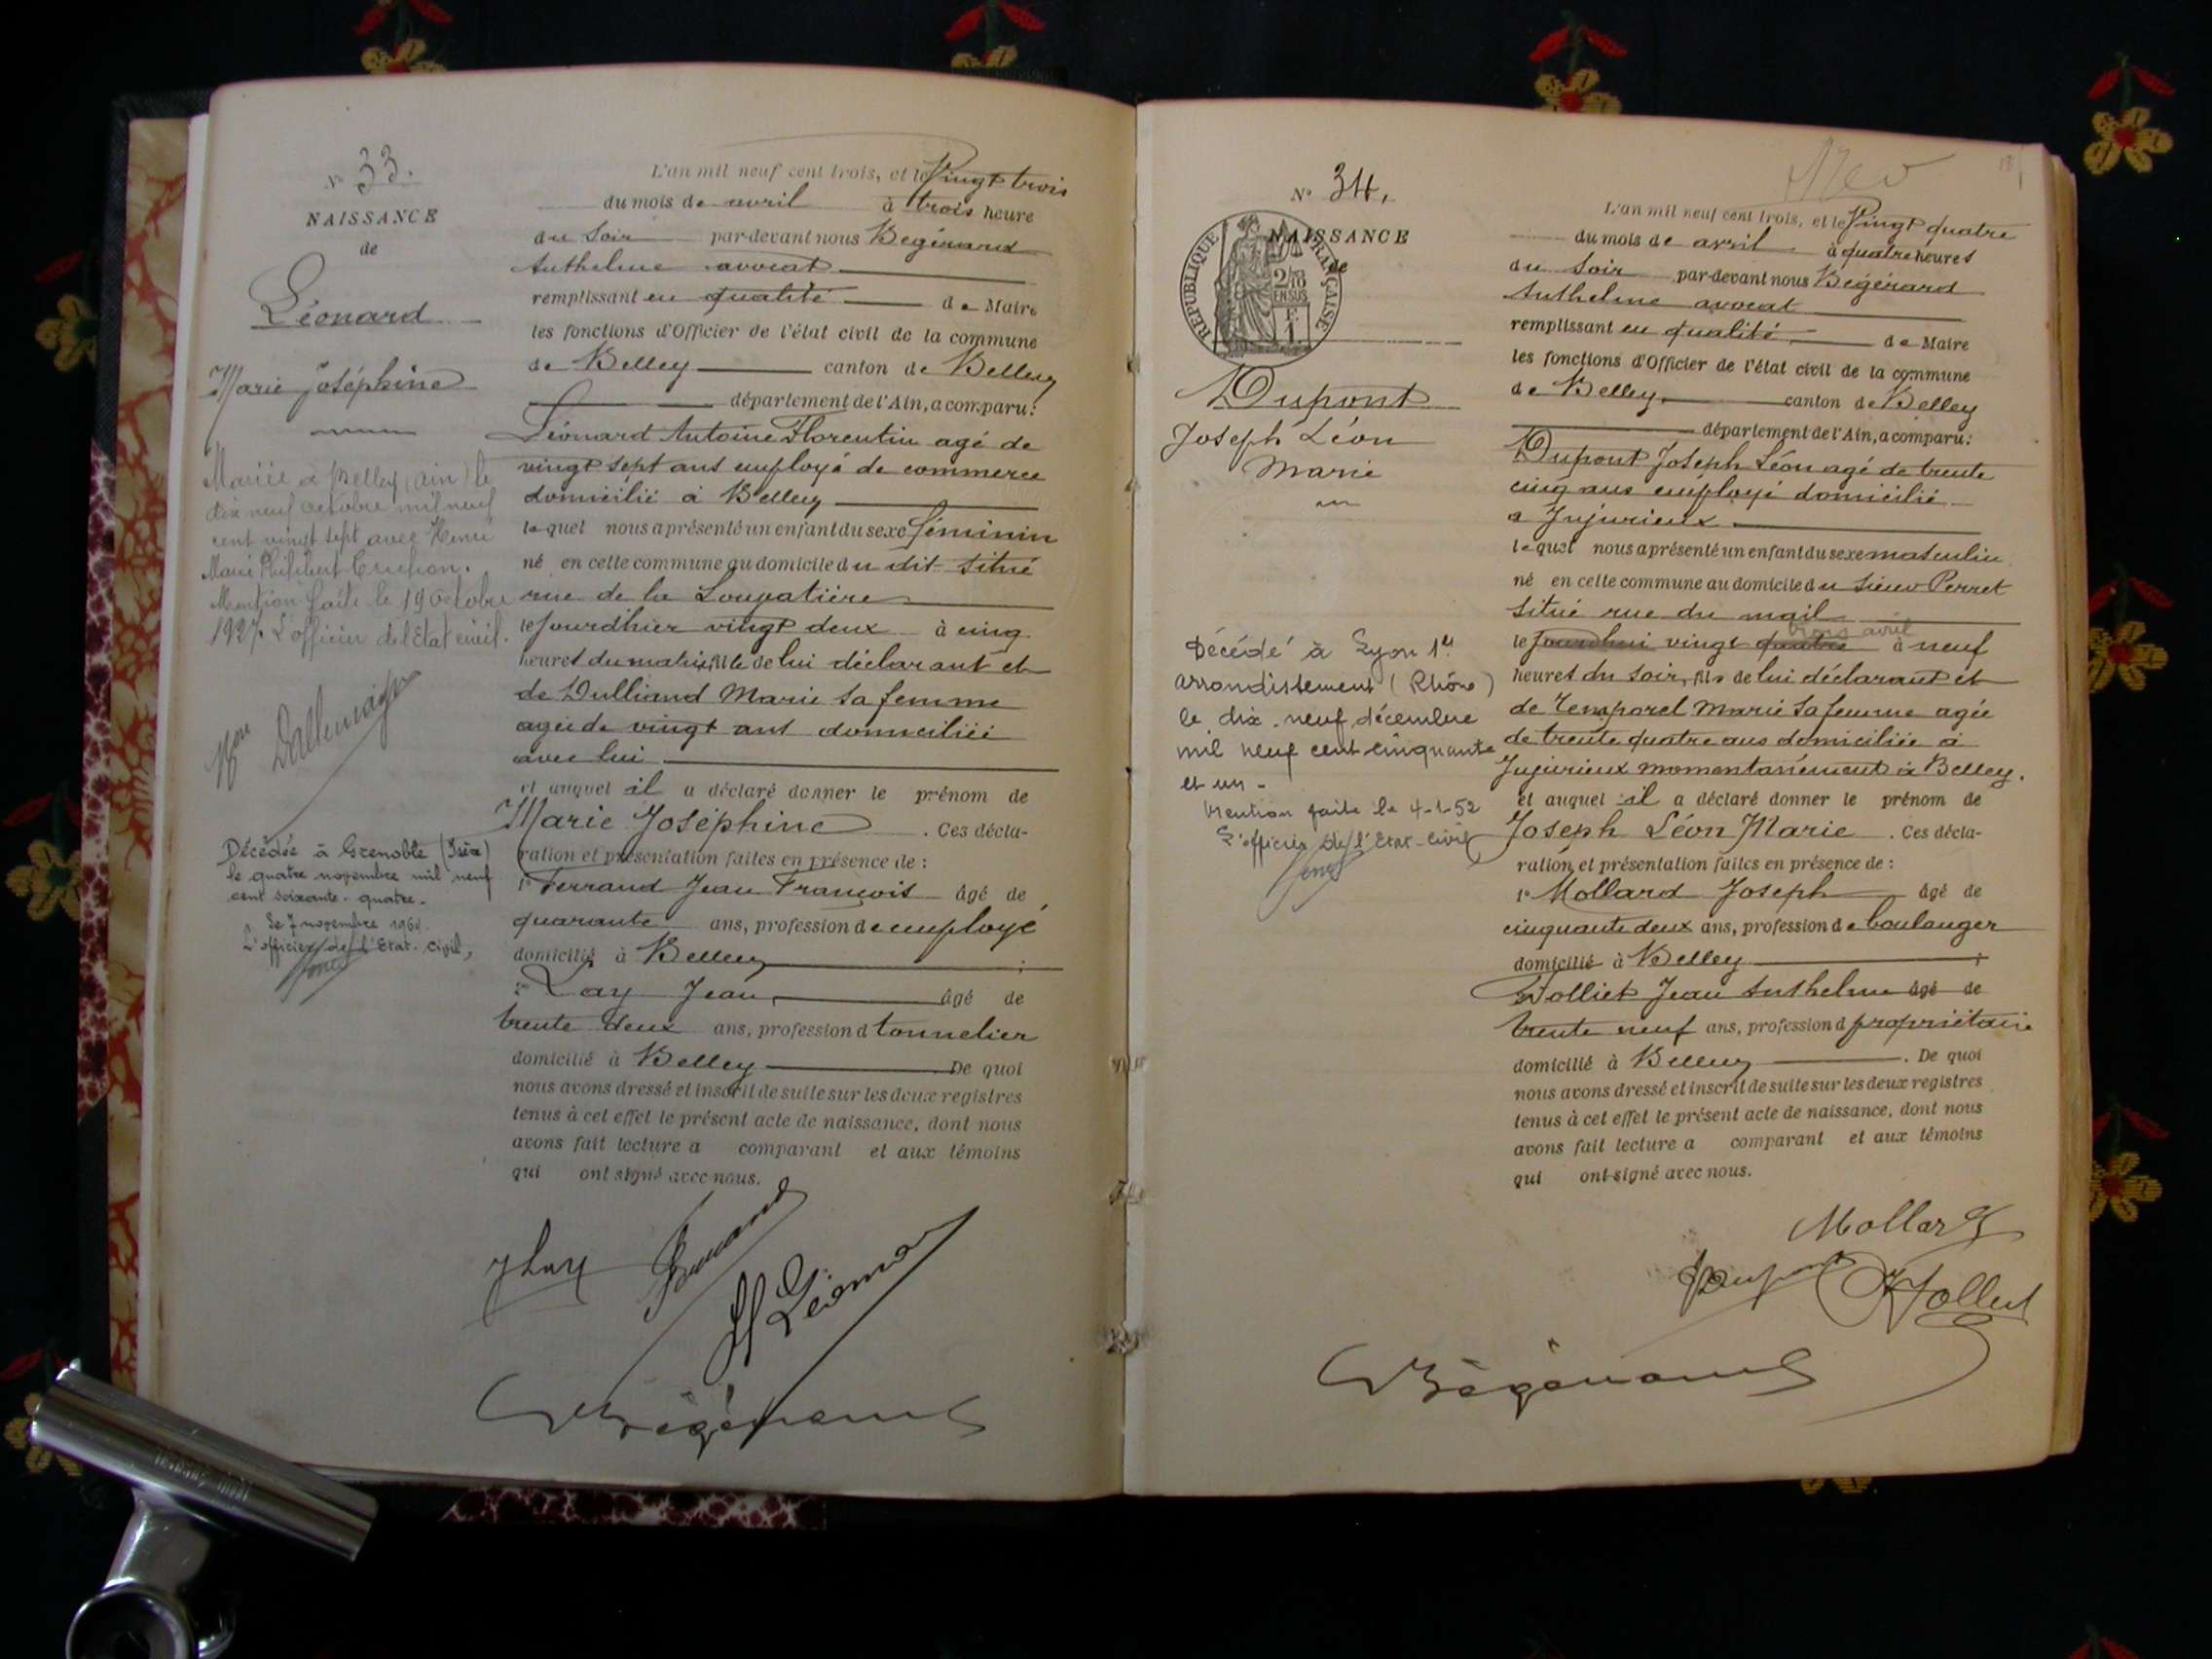 N° 33.
NAISSANCE
de
Léonard
Marie Joséphine
Mariée à Belley (Ain) le
dix neuf octobre mil neuf
cent vingt sept avec Henri
Marie Philibert
Mention faite le 19 octobre
1927. L'officier de l'Etat civil.
Décédée à Grenoble (Isère)
le quatre novembre mil neuf
cent soixante-quatre.
Le 7 novembre 1964.
L'officier de l'Etat-Civil,
L'an mil neuf cent trois, et le Vingt trois
du mois de avril à trois heure
du soir par-devant nous Bégérard
Anthelme avocat
remplissant en qualité de Maire
les fonctions d'Officier de l'état civil de la commune
de Belley canton de Belley
département de l'Ain, a comparu:
Léonard Antoine Florentin agé de
vingt sept ans employé de commerce
domicilié à Belley
lequel nous a présenté un enfant du sexe féminin
né en cette commune au domicile du dit situé
rue de la
le jourdhier vingt deux à cinq
heures du matin, fille de lui déclarant et
de Dulliand Marie sa femme
agée de vingt ans domiciliée
avec lui
et auquel il a déclaré donner le prénom de
Marie Joséphine. Ces décla-
ration et présentation faites en présence de:
1° Ferrand Jean François âgé de
quarante ans, profession de employé
domicilié à Belley;
2° Lay Jean, âgé de
trente deux ans, profession d tonnelier
domicilié à Belley De quoi
nous avons dressé et inscrit de suite sur les deux registres
tenus à cet effet le présent acte de naissance, dont nous
avons fait lecture a comparant et aux témoins
qui ont signé avec nous.
J Lay Ferrand
Léonard
Bégérard
N° 34.
NAISSANCE
de
RÉPUBLIQUE FRANÇAISE
2/10
EN SUS
1 F.
Dupont
Joseph Léon
Marie
Décédé à Lyon 1er
arrondissement (Rhône)
le dix-neuf décembre
mil neuf cent cinquante
et un-
Mention faite le 4-1-52
L'officier de l'Etat-Civil
L'an mil neuf cent trois, et le Vingt quatre
du mois de avril à quatre heures
du soir par-devant nous Bégérard
Anthelme avocat
remplissant en qualité de Maire
les fonctions d'Officier de l'état civil de la commune
de Belley canton de Belley
département de l'Ain, a comparu:
Dupont Joseph Léon agé de trente
cinq ans employé domicilié
a Jujurieux
lequel nous a présenté un enfant du sexe masculin
né en cette commune au domicile du sieur Perret
situé rue du mail
trois avril
le jourdhui vingt quatre à neuf
heures du soir, fils de lui déclarant et
de Temporel Marie sa femme agée
de trente quatre ans domiciliée à
Jujurieux momentanément à Belley.
et auquel il a déclaré donner le prénom de
Joseph Léon Marie. Ces décla-
ration et présentation faites en présence de:
1° Mollard Joseph âgé de
cinquante deux ans, profession de boulanger
domicilié à Belley;
Jean Anthelme âgé de
trente neuf ans, profession d propriétaire
domicilié à Belley. De quoi
nous avons dressé et inscrit de suite sur les deux registres
tenus à cet effet le présent acte de naissance, dont nous
avons fait lecture a comparant et aux témoins
qui ont signé avec nous.
Mollard
Dupont
Bégérard